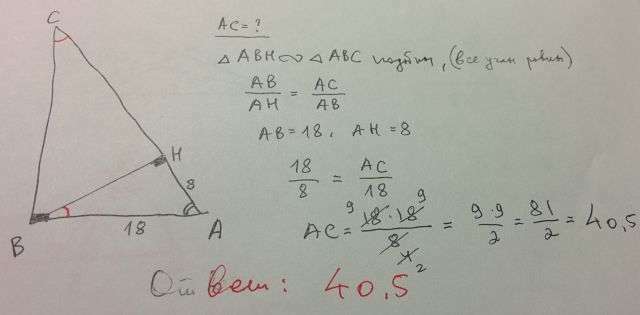 C
H
8
B
18
A
AC = ?
△ABH ∾ △ABC подобны, (все углы равны)
AB/AH = AC/AB
AB = 18, AH = 8
18/8 = AC/18
AC = 18·18/8 = 9·9/2 = 81/2 = 40,5
9 9
4
2
Ответ: 40,5